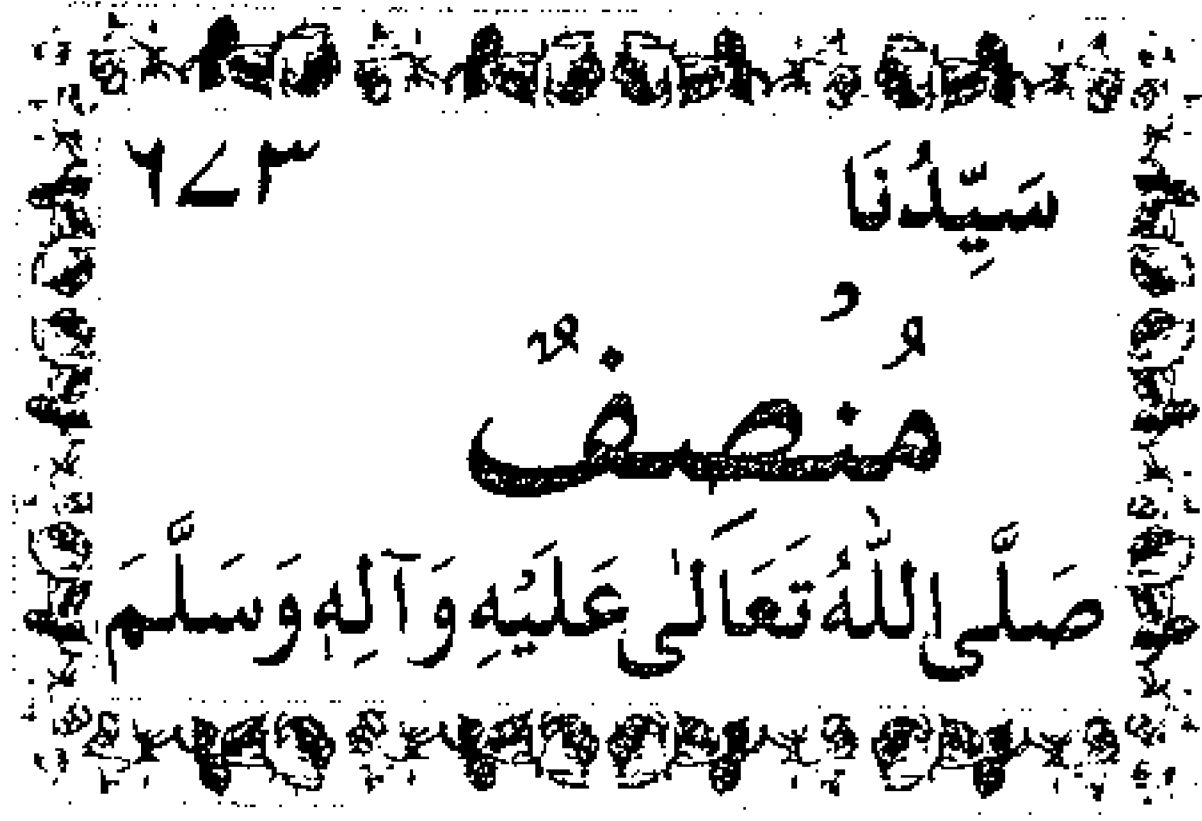 سَيِّدُنَا ٦٧٣
مُنْصِفٌ
صَلَّى اللّٰهُ تَعَالٰى عَلَيْهِ وَآلِهٖ وَسَلَّمَ